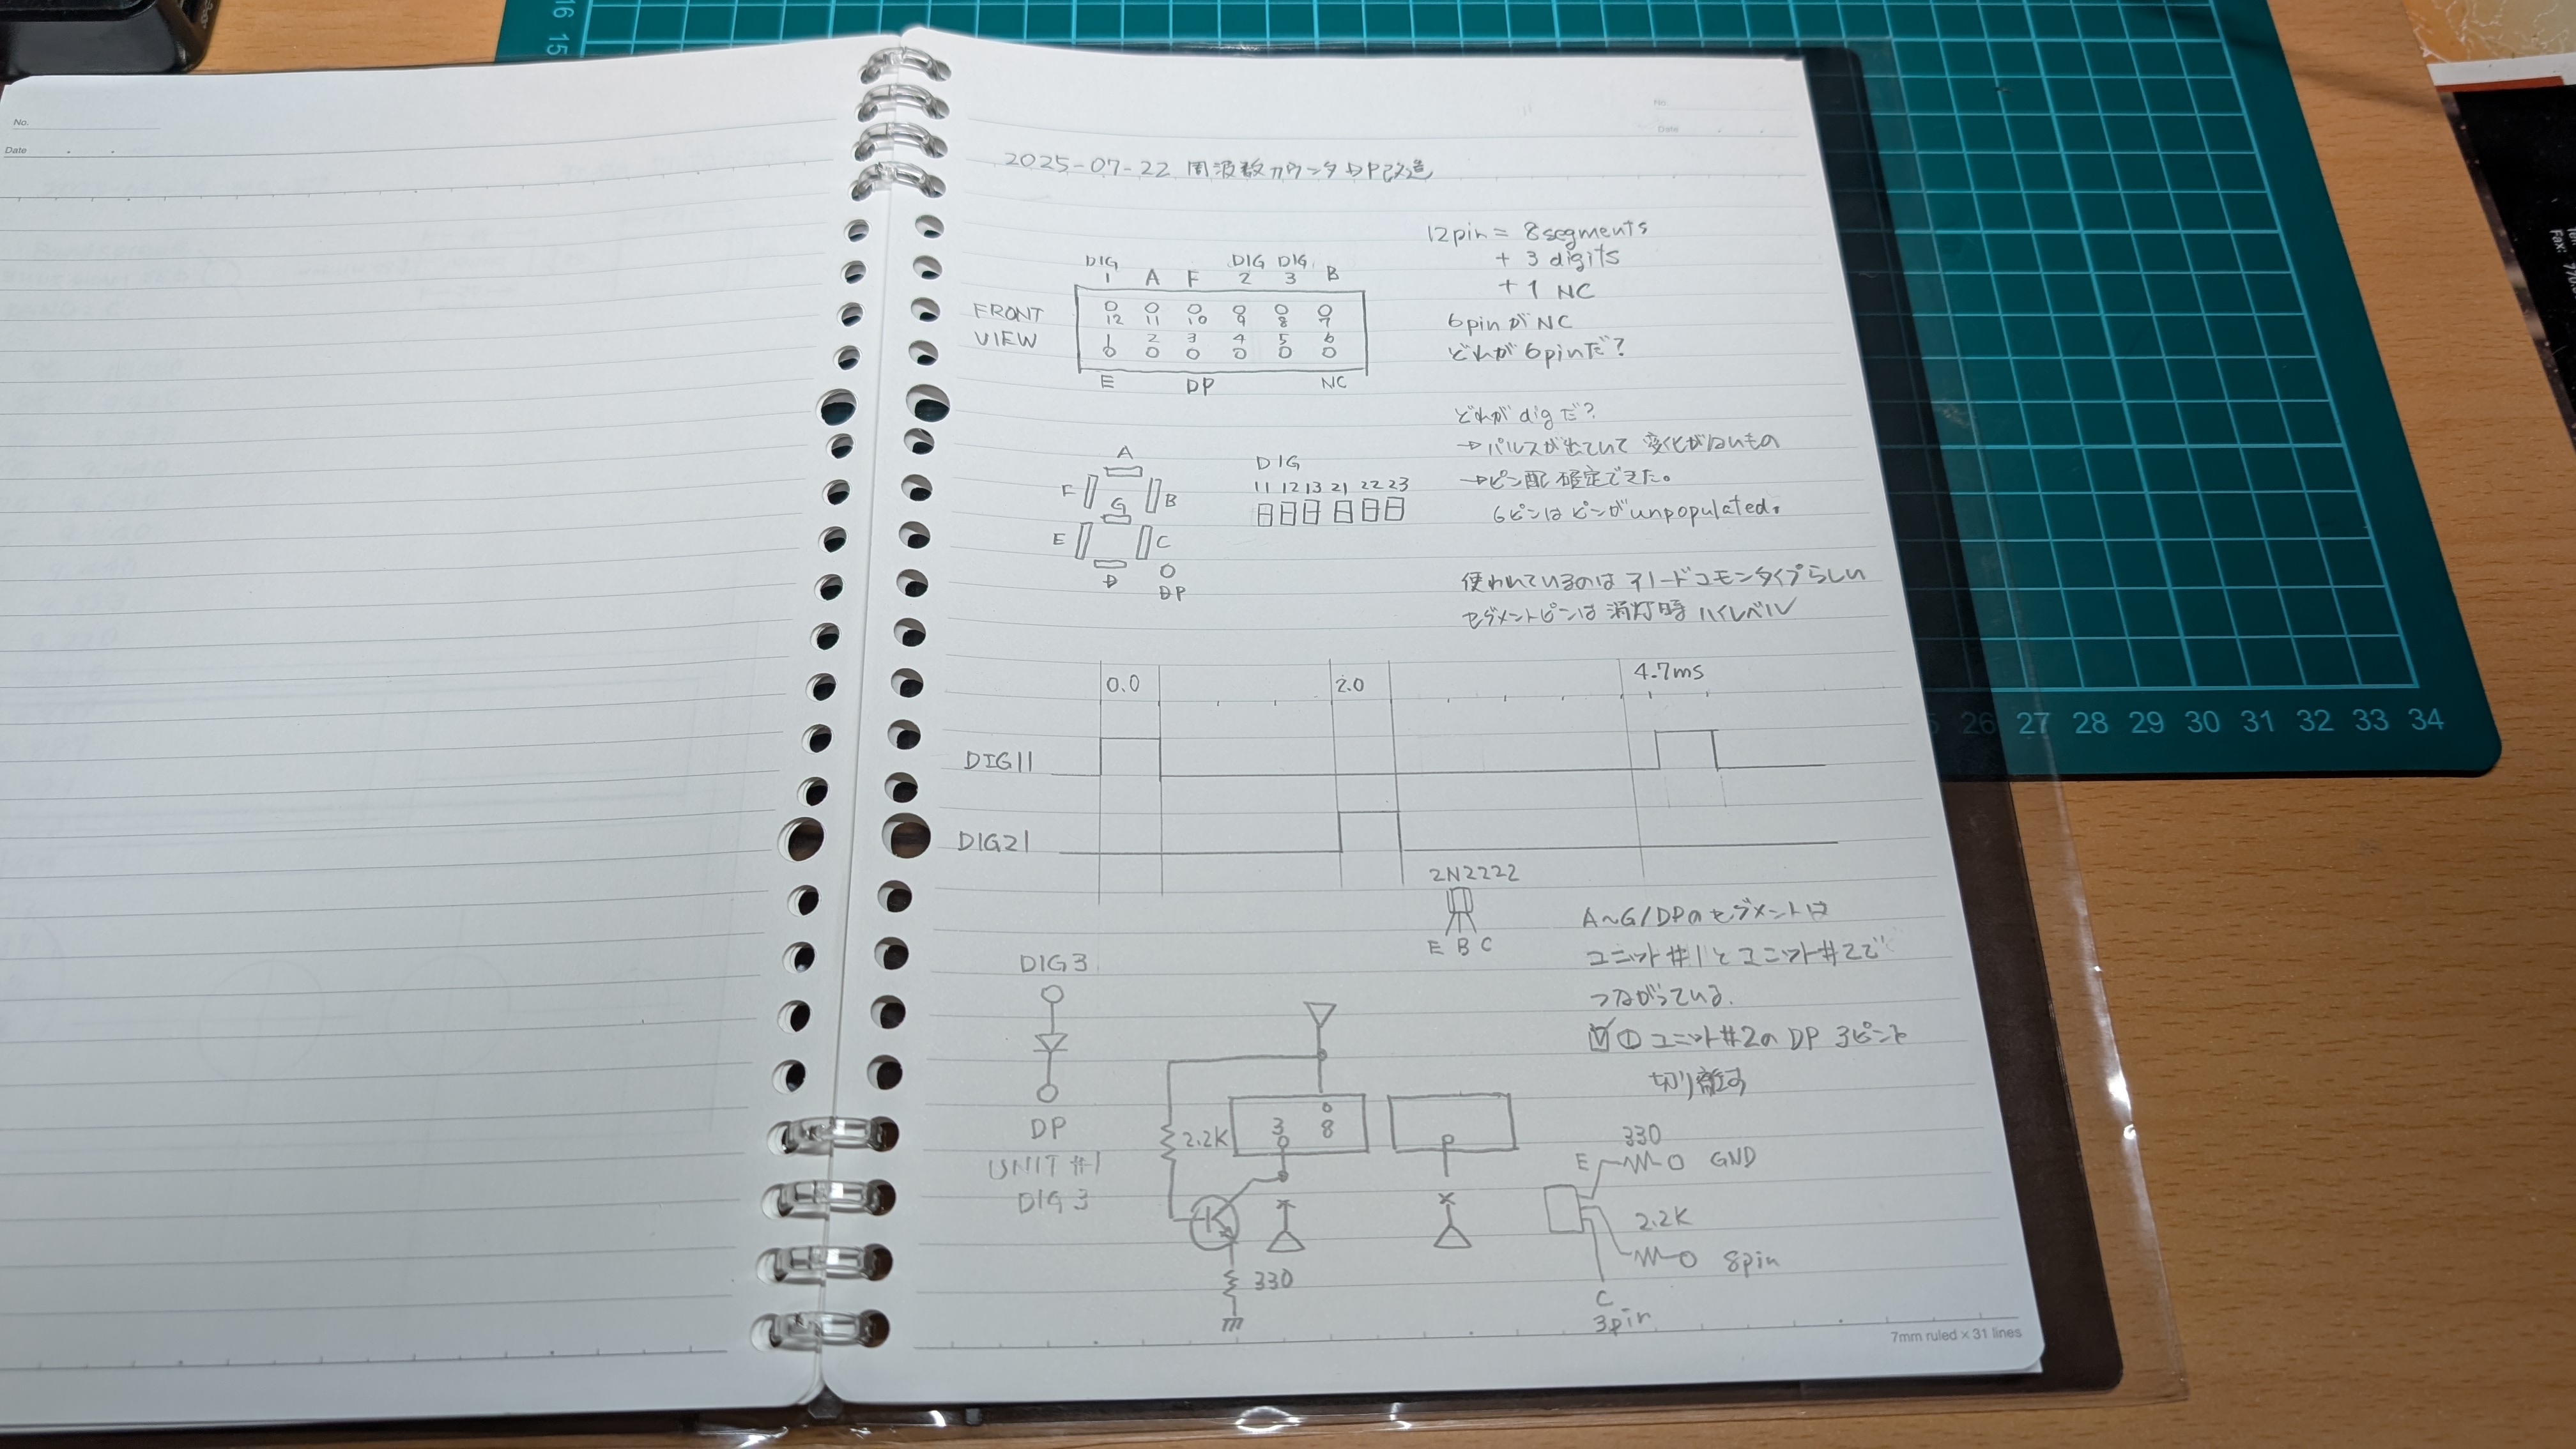 16
15
No.
Date
No.
Date
2025-07-22 周波数カウンタDP改造
12pin = 8segments
+ 3 digits
+ 1 NC
6pinがNC
どれが6pinだ?
DIG 1 A F DIG 2 DIG 3 B
FRONT VIEW
12 11 10 9 8 7
1 2 3 4 5 6
E DP NC
どれがdigだ?
→パルスが出ていて変化がないもの
→ピン配確定できた。
6ピンはピンがunpopulated.
A
F G B
E C
D DP
DIG
11 12 13 21 22 23
使われているのはアノードコモンタイプらしい
セグメントピンは消灯時ハイレベル
0.0 2.0 4.7ms
DIG11
DIG21
2N2222
E B C
A~G/DPのセグメントは
ユニット#1とユニット#2で
つながっている.
①ユニット#2のDP 3ピンを
切り離す
DIG3
DP
UNIT #1
DIG3
2.2K
3 8
330
330
E GND
2.2K
8pin
C
3pin
7mm ruled × 31 lines
26 27 28 29 30 31 32 33 34